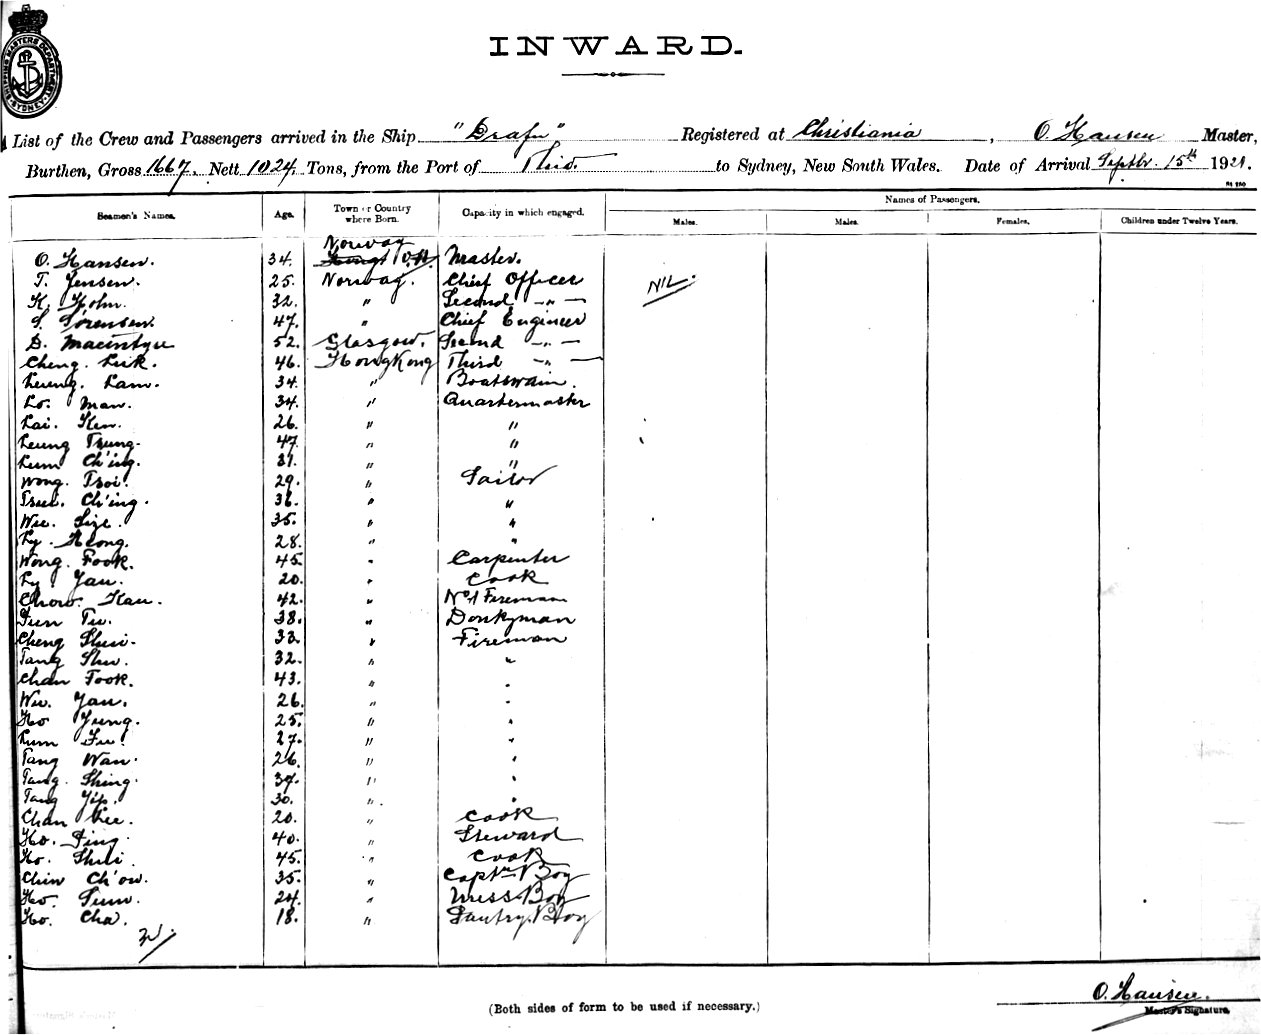 SHIPPING MASTERS DEPARTMENT SYDNEY
INWARD.
List of the Crew and Passengers arrived in the Ship "Drafn" Registered at Christiania, O. Hansen Master,
Burthen, Gross 1667. Nett 1024. Tons, from the Port of Thio. to Sydney, New South Wales. Date of Arrival Septbr. 15th 1921.
Names of Passengers.
Seamen's Names. Age. Town or Country where Born. Capacity in which engaged. Males. Males. Females. Children under Twelve Years.
Norway
O. Hansen. 34. Master.
T. Jensen. 25. Norway. Chief Officer NIL
K. Holm. 32. " Second -"-
S. Sörensen. 47. " Chief Engineer
D. Macintyre 52. Glasgow. Second -"-
Cheng. Luk. 46. HongKong Third -"-
Leung. Lam. 34. " Boatswain.
Lo. Man. 34. " Quartermaster
Lai. Ken. 26. " "
Leung Tsung. 47. " "
Lum Ch'ing. 31. " "
Wong. Tsoi. 29. " Sailor
Tsui. Ch'ing. 36. " "
Wu. Size. 35. " "
Ly. Keong. 28. " "
Wong. Fook. 45. " Carpenter
Ly. Yau. 20. " Cook
Chow. Kau. 42. " No 1 Fireman
Tu. 38. " Donkyman
Cheng Shui. 33. " Fireman
Tang Shu. 32. " "
Chan Fook. 43. " "
Wu. Yau. 26. " "
Ho Yung. 25. " "
Lum Fu. 27. " "
Tang Wan. 26. " "
Tang. Shing. 34. " "
Tang Yip. 30. " "
Chan Lee. 20. " Cook
Ho. Ping. 40. " Steward
Ho. Shui. 45. " Cook
Chin Ch'ow. 35. " Captn Boy
Ho. Sum. 24. " Mess Boy
Ho. Cha. 18. " Pantry Boy
(Both sides of form to be used if necessary.)
O. Hansen.
Master's Signature.